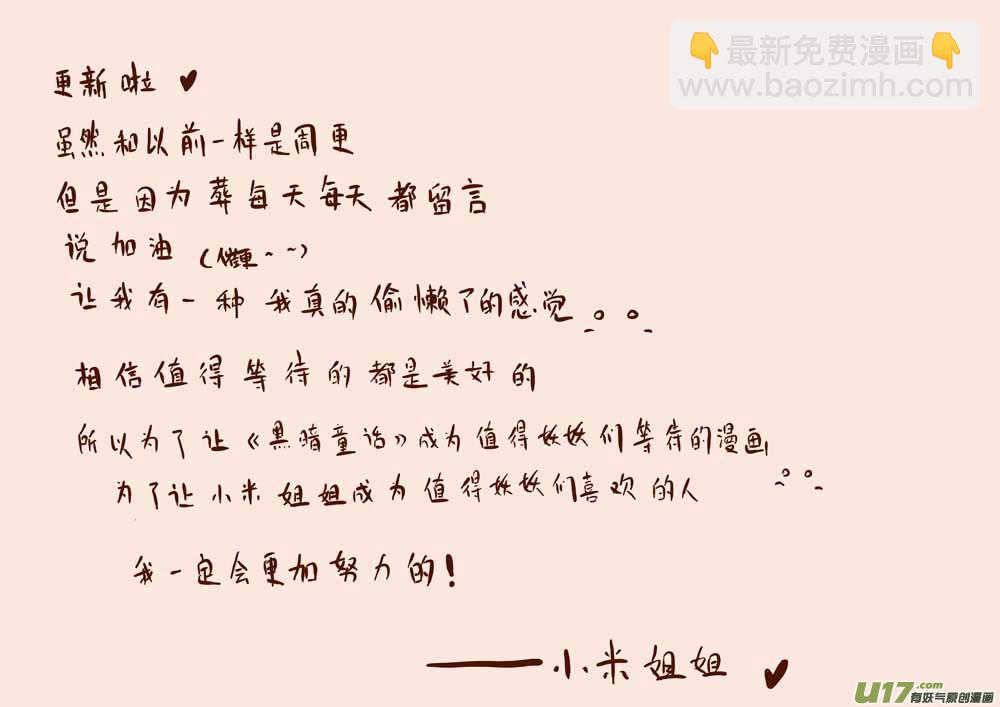 👇最新免费漫画👇
www.baozimh.com
更新啦 ♥
虽然和以前一样是周更
但是因为葬每天每天都留言
说加油(催更~~)
让我有一种我真的偷懒了的感觉
相信值得等待的都是美好的
所以为了让《黑暗童话》成为值得妖妖们等待的漫画
为了让小米姐姐成为值得妖妖们喜欢的人
我一定会更加努力的!
——小米姐姐 ♥
U17.com
有妖气原创漫画